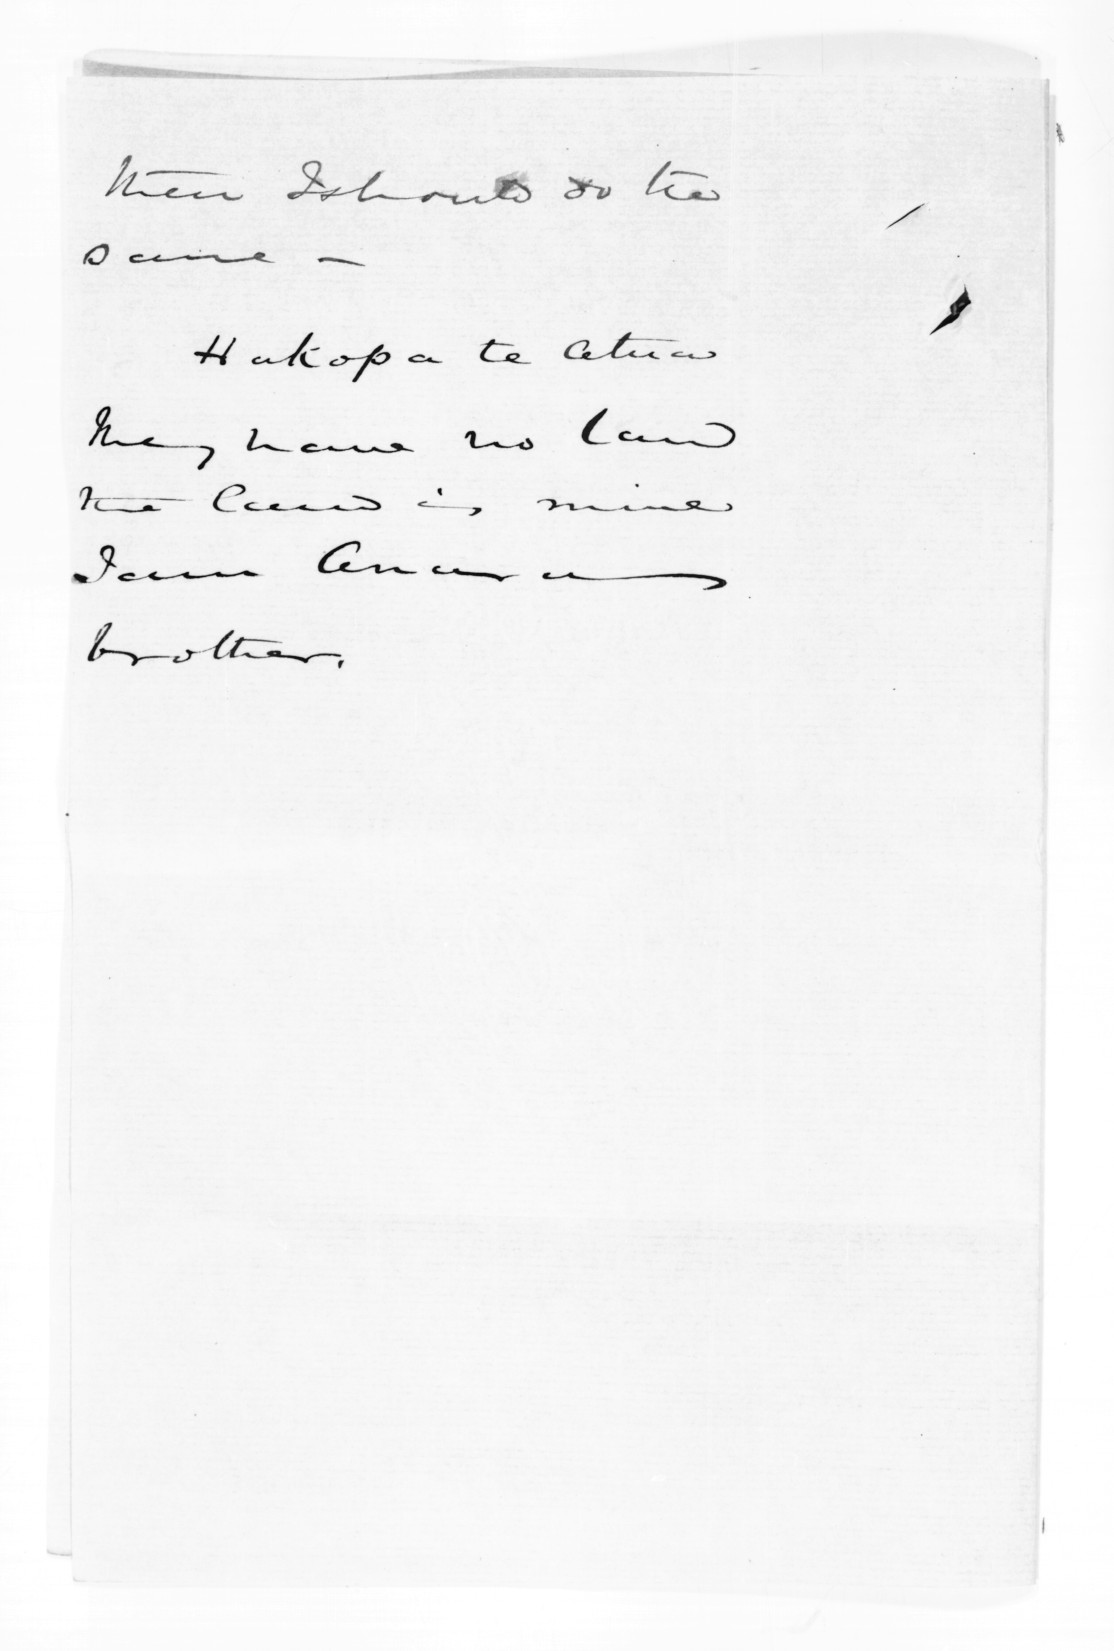 then I should do the
same -
Hakopa te Atua
They have no land
the land is mine
I am Anaras
brother.